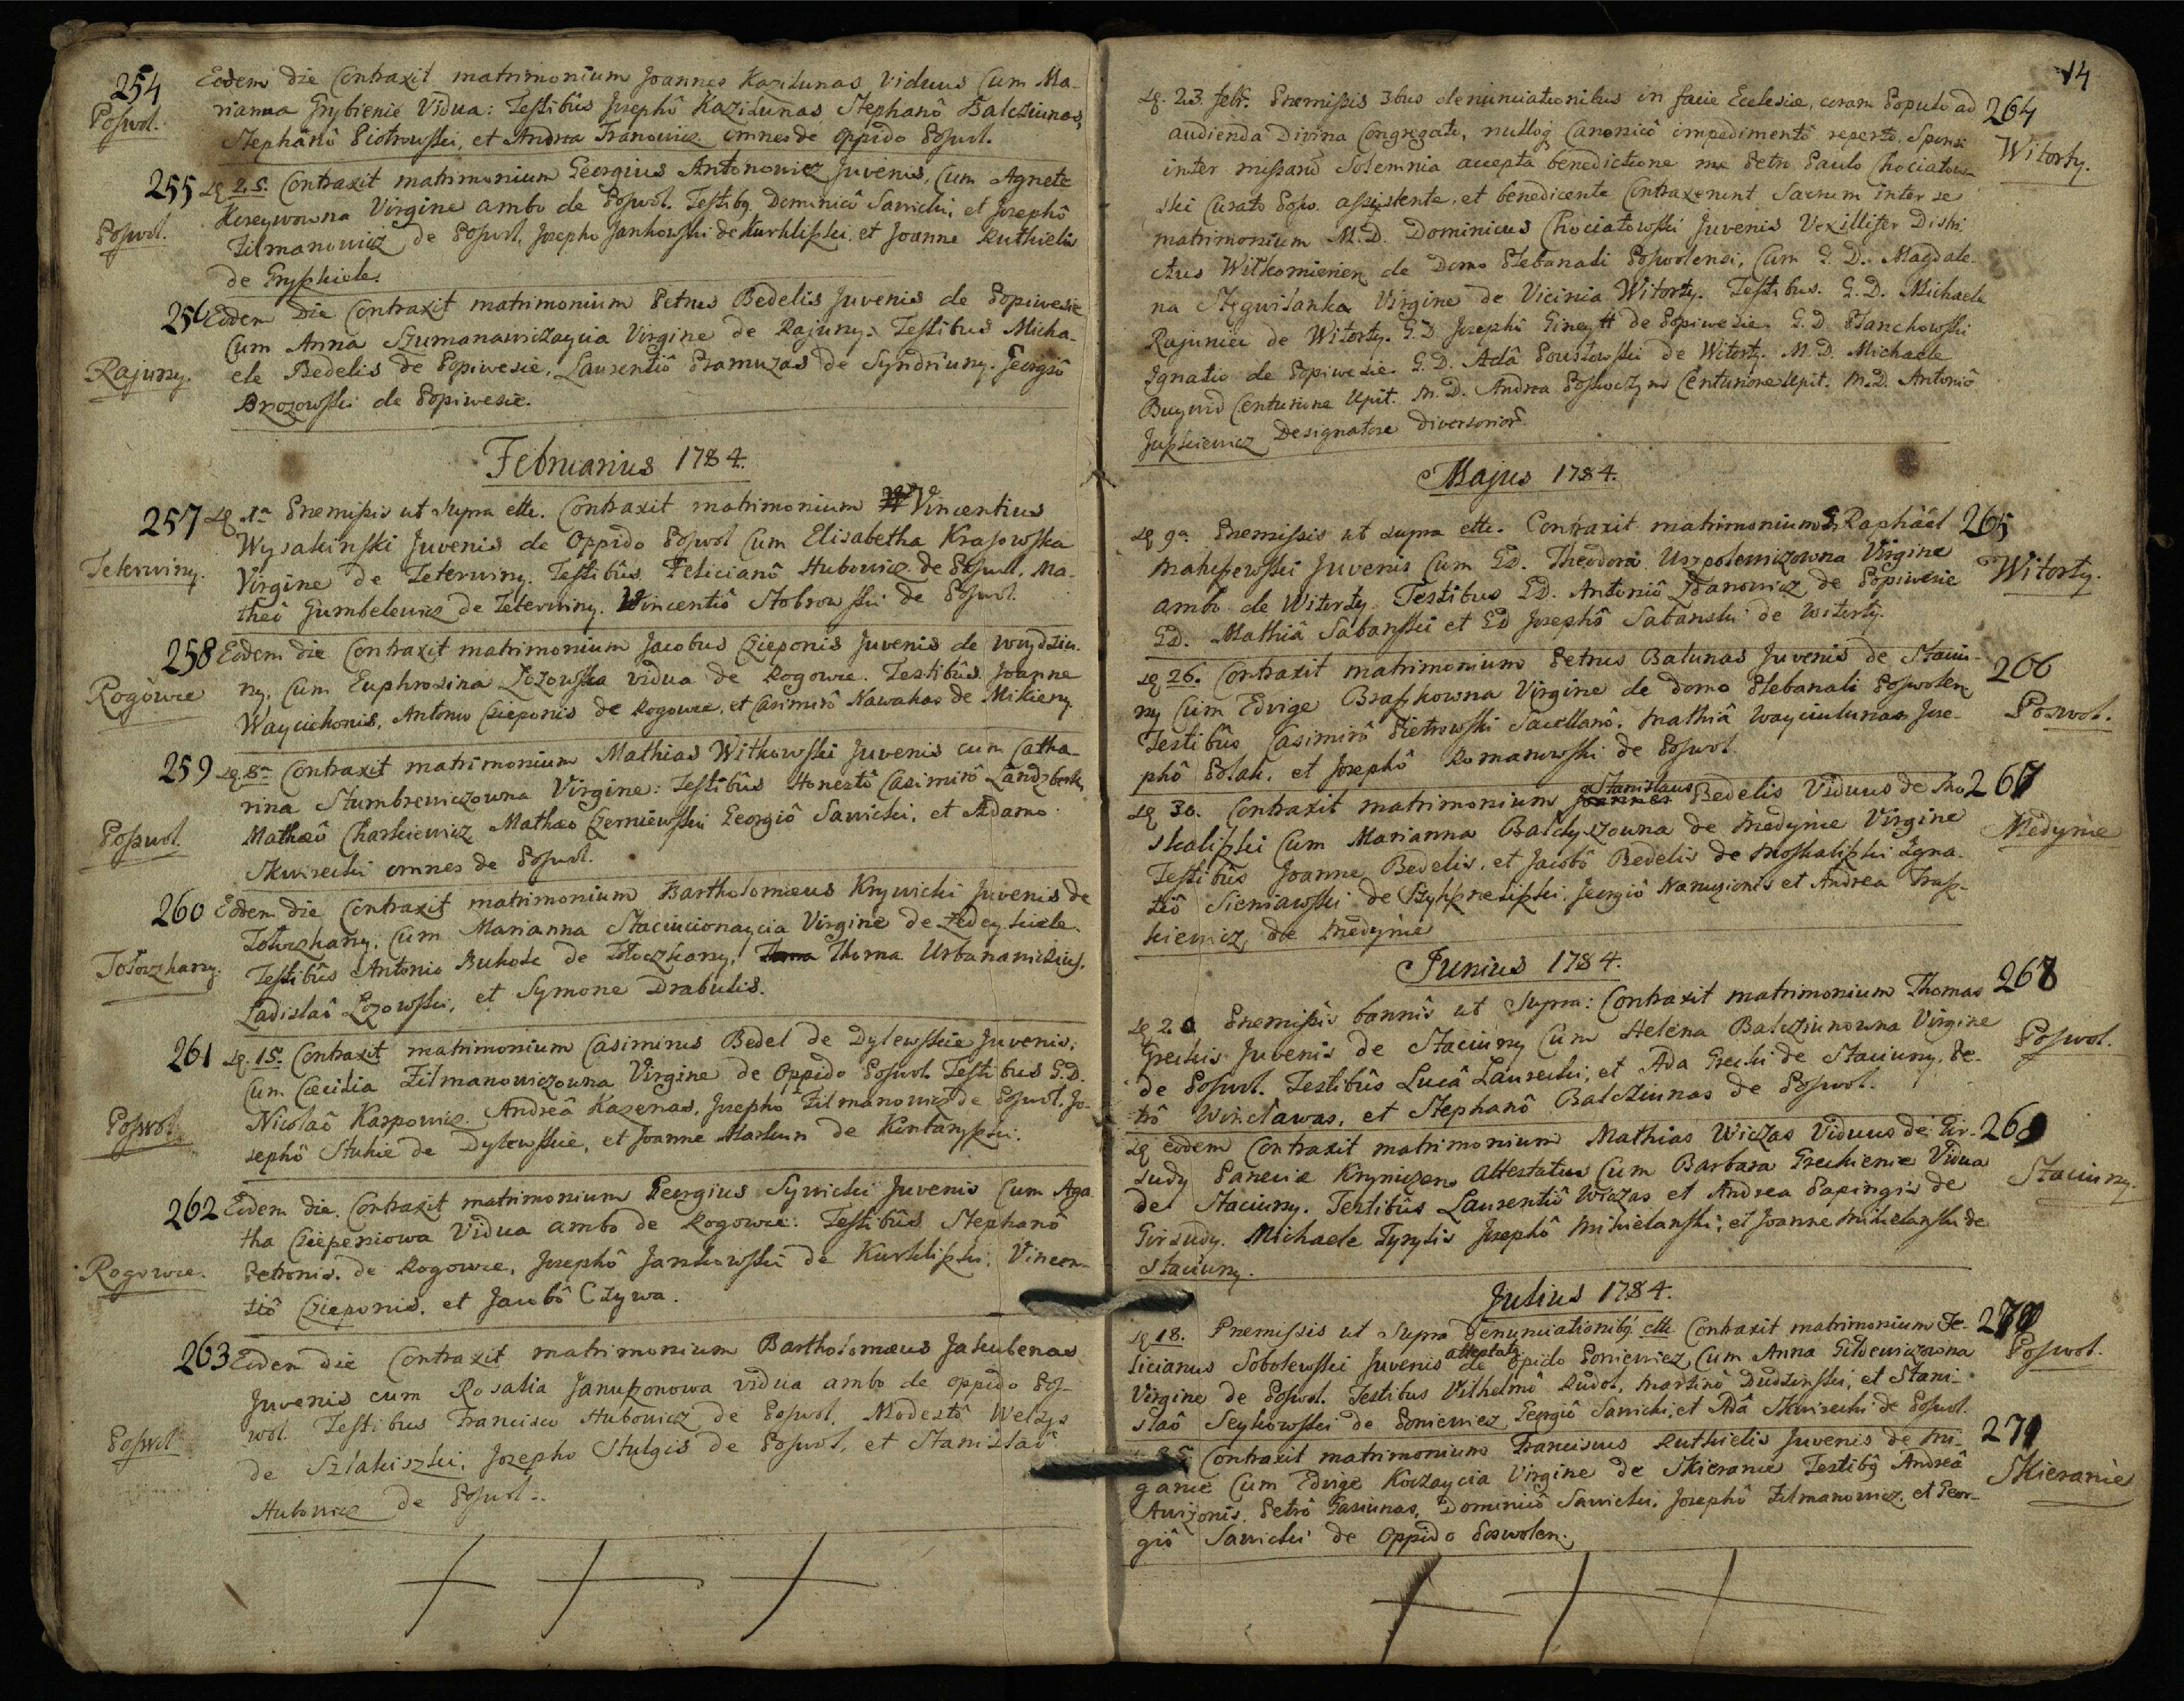 254
Poswol.
Eodem die Contraxit matrimonium Joannes Kazilunas Viduus Cum Ma-
rianna Grybienie Vidua: Testibûs Josephô Kazilunas Stephanô Balcziunas,
Stephanô Piotrowski, et Andrea Iranowicz omnes de oppido Poswol.
255
Poswol.
25. Contraxit matrimonium Georgius Antonowicz Juvenis, Cum Agnete
Virgine ambo de Poswol. Testibq Dominicô Sawicki, et Josephô
Zilmanowicz de Poswol, Josepho Jankowski de Kurkliszki, et Joanne Ruthielis
de Gryszkiele.
256
Rajuny.
Eodem die Contraxit matrimonium Petrus Bedelis Juvenis de Popiwesie
Cum Anna Szumanawiczaycia Virgine de Rajuny: Testibus Micha-
ele Bedelis de Popiwesie, Laurentiô Pramuzas de Syndriuny. Georgiô
Brozowski de Popiwesie.
Februarius 1784.
257
Teterwiny.
1a Premissis ut supra ette. Contraxit matrimonium Vincentius
Wysakinski Juvenis de Oppido Poswol Cum Elisabetha Krasowska
Virgine de Teterwiny. Testibûs Felicianô Hubowicz de Poswol, Ma-
theô Gumbelewicz de Teterwiny. Vincentiô Stobrowski de Poswol.
258
Rogowce
Eodem die Contraxit matrimonium Jacobus Czieponis Juvenis de Woydziu-
ny, Cum Euphrosina Lozowska vidua de Rogowce. Testibûs Joanne
Wayciekonis, Antonio Czieponis de Rogowce, et Casimirô Nawakas de Mikieny.
259
Poswol.
8a Contraxit matrimonium Mathias Witkowski Juvenis cum Catha-
rina Stumbrewiczowna Virgine: Testibûs Honestô Casimirô Landzberk,
Mathæô Charkiewicz Mathæo Czerniewski Georgiô Sawicki, et Adamo
Skwirecki omnes de Poswol.
260
Tołoczkany.
Eodem die Contraxit matrimonium Bartholomæus Krywicki Juvenis de
Tołoczkany, Cum Marianna Staciucionaycia Virgine de Ledeykiele.
Testibûs Antonio Bukote de Tołoczkany, Thoma Urbanawiczius,
Ladislaô Lozowski, et Symone Drabulis.
261
Poswol.
15. Contraxit matrimonium Casimirus Bedel de Dylewskie Juvenis,
Cum Cæcilia Zilmanowiczowna Virgine de Oppido Poswol. Testibus G.D.
Nicolaô Karpowicz. Andreâ Kazenas, Josepho Zilmanowicz de Poswol. Jo-
sephô Stukie de Dylewskie, et Joanne Markun de Kintaryszki.
262
Rogowce.
Eodem die. Contraxit matrimonium Georgius Sywicki Juvenis Cum Aga
tha Czieponiowa Vidua ambo de Rogowce: Testibûs Stephanô
Petronis. de Rogowce, Josephô Jankowski de Kurkliszki, Vincen-
tiô Czieponis. et Jacobô Czywa.
263
Poswol
Eodem die Contraxit matrimonium Bartholomæus Jakubenas
Juvenis cum Rosalia Januszonowa vidua ambo de oppido Pos-
wol. Testibus Francisco Hubowicz de Poswol, Modestô Welzys
de Szlakiszki, Josepho Stulgis de Poswol, et Stanislaô
Hubowicz de Poswol.
14
264
Witorty.
23. Febr. Premissis 3bus denunciationibus in facie Ecclesiæ, coram Populo ad
audienda Divina Congregato, nulloq Canonicô impedimentô reperto, Sponsi
inter missarû Solemnia accepta benedictione me Petro Paulo Chociatow-
ski Curato Posw. assistente, et benedicente Contraxerunt Sacrum inter se
matrimonium M.D. Dominicus Chociatowski Juvenis Vexillifer Distri
ctus Witkomirien de Domo Plebanali Poswolensi, Cum G. D. Magdale-
na Virgine de Vicinia Witorty. Testibus. G.D. Michaele
Rajuniec de Witorty. G.D Josephô Gineytt de Popiwesie. G.D Stanchowski
Ignatio de Popiwesie. G.D. Adâ Poustowski de Witorty. M.D. Michaele
Buywid Centurione Upit. M.D. Andrea Centurione Upit. M.D. Antoniô
Juszkiewicz Designatore diversorior.
Majus 1784.
265
Witorty.
9a Premissis ut supra ette. Contraxit matrimonium Raphäel
Matuszewski Juvenis Cum GD. Theodora Uszpolewiczowna Virgine
ambo de Witorty. Testibus GD. Antoniô Zdanowicz de Popiwesie
GD. Mathiâ Sabanski et GD Josephô Sabanski de Witorty.
266
Poswol.
26. Contraxit matrimonium Petrus Balunas Juvenis de Staciu-
ny Cum Edvige Braszkowna Virgine de domo Plebanali Poswolen
Testibûs Casimirô Pietrowski Sacellanô. Mathiâ Wayciulunas Jose-
phô Polak. et Josephô Romanowski de Poswol.
267
Medynie
30. Contraxit matrimonium Joannes Stanislaus Bedelis Viduus de Mo
skaliszki Cum Marianna Balczyszowna de Medynie Virgine
Testibûs Joanne Bedelis, et Jacobô Bedelis de Moskaliszki Igna-
tiô Sieniawski de Georgiô Naruszionis et Andrea Trasz-
kiewicz, de Medynie
Junius 1784.
268
Poswol.
20 Premissis bannis ut supra: Contraxit matrimonium Thomas
Greckis Juvenis de Staciuny Cum Helena Balcziunowna Virgine
de Poswol. Testibûs Lucâ Laurecki, et Ada Grecki de Staciuny, Pe-
trô Winclawas, et Stephanô Balcziunas de Poswol.
269
Staciuny.
eodem Contraxit matrimonium Mathias Wiczas Viduus de Gir-
sudy Paneciæ Krynicen Attestatus Cum Barbara Greckienie Vidua
de Staciuny. Testibûs Laurentiô Wiczas et Andrea Papingis de
Girsudy. Michaele Tyrylis Josephô Mikielanski, et Joanne Mikielanski de
Staciuny.
Julius 1784.
270
Poswol.
18. Premissis ut supra denunciationibq ette Contraxit matrimonium Fe-
licianus Sobolewski Juvenis attestatq de Opido Poniewiez, Cum Anna Gitdewiczowna
Virgine de Poswol. Testibus Vilhelmô Rudol, Martinô Dudzinski, et Stani-
slaô Seykowski de Poniewiez Georgiô Sawicki, et Adâ Skwirecki de Poswol.
271
Skieranie
Contraxit matrimonium Franciscus Ruthielis Juvenis de Mi-
ganie Cum Edvige Koczaycia Virgine de Skieranie Testibq Andreâ
Awizonis. Petrô Gasiunas, Dominicô Sawicki. Josephô Zilmanowicz, et Geor-
giô Sawicki de Oppido Poswolen.